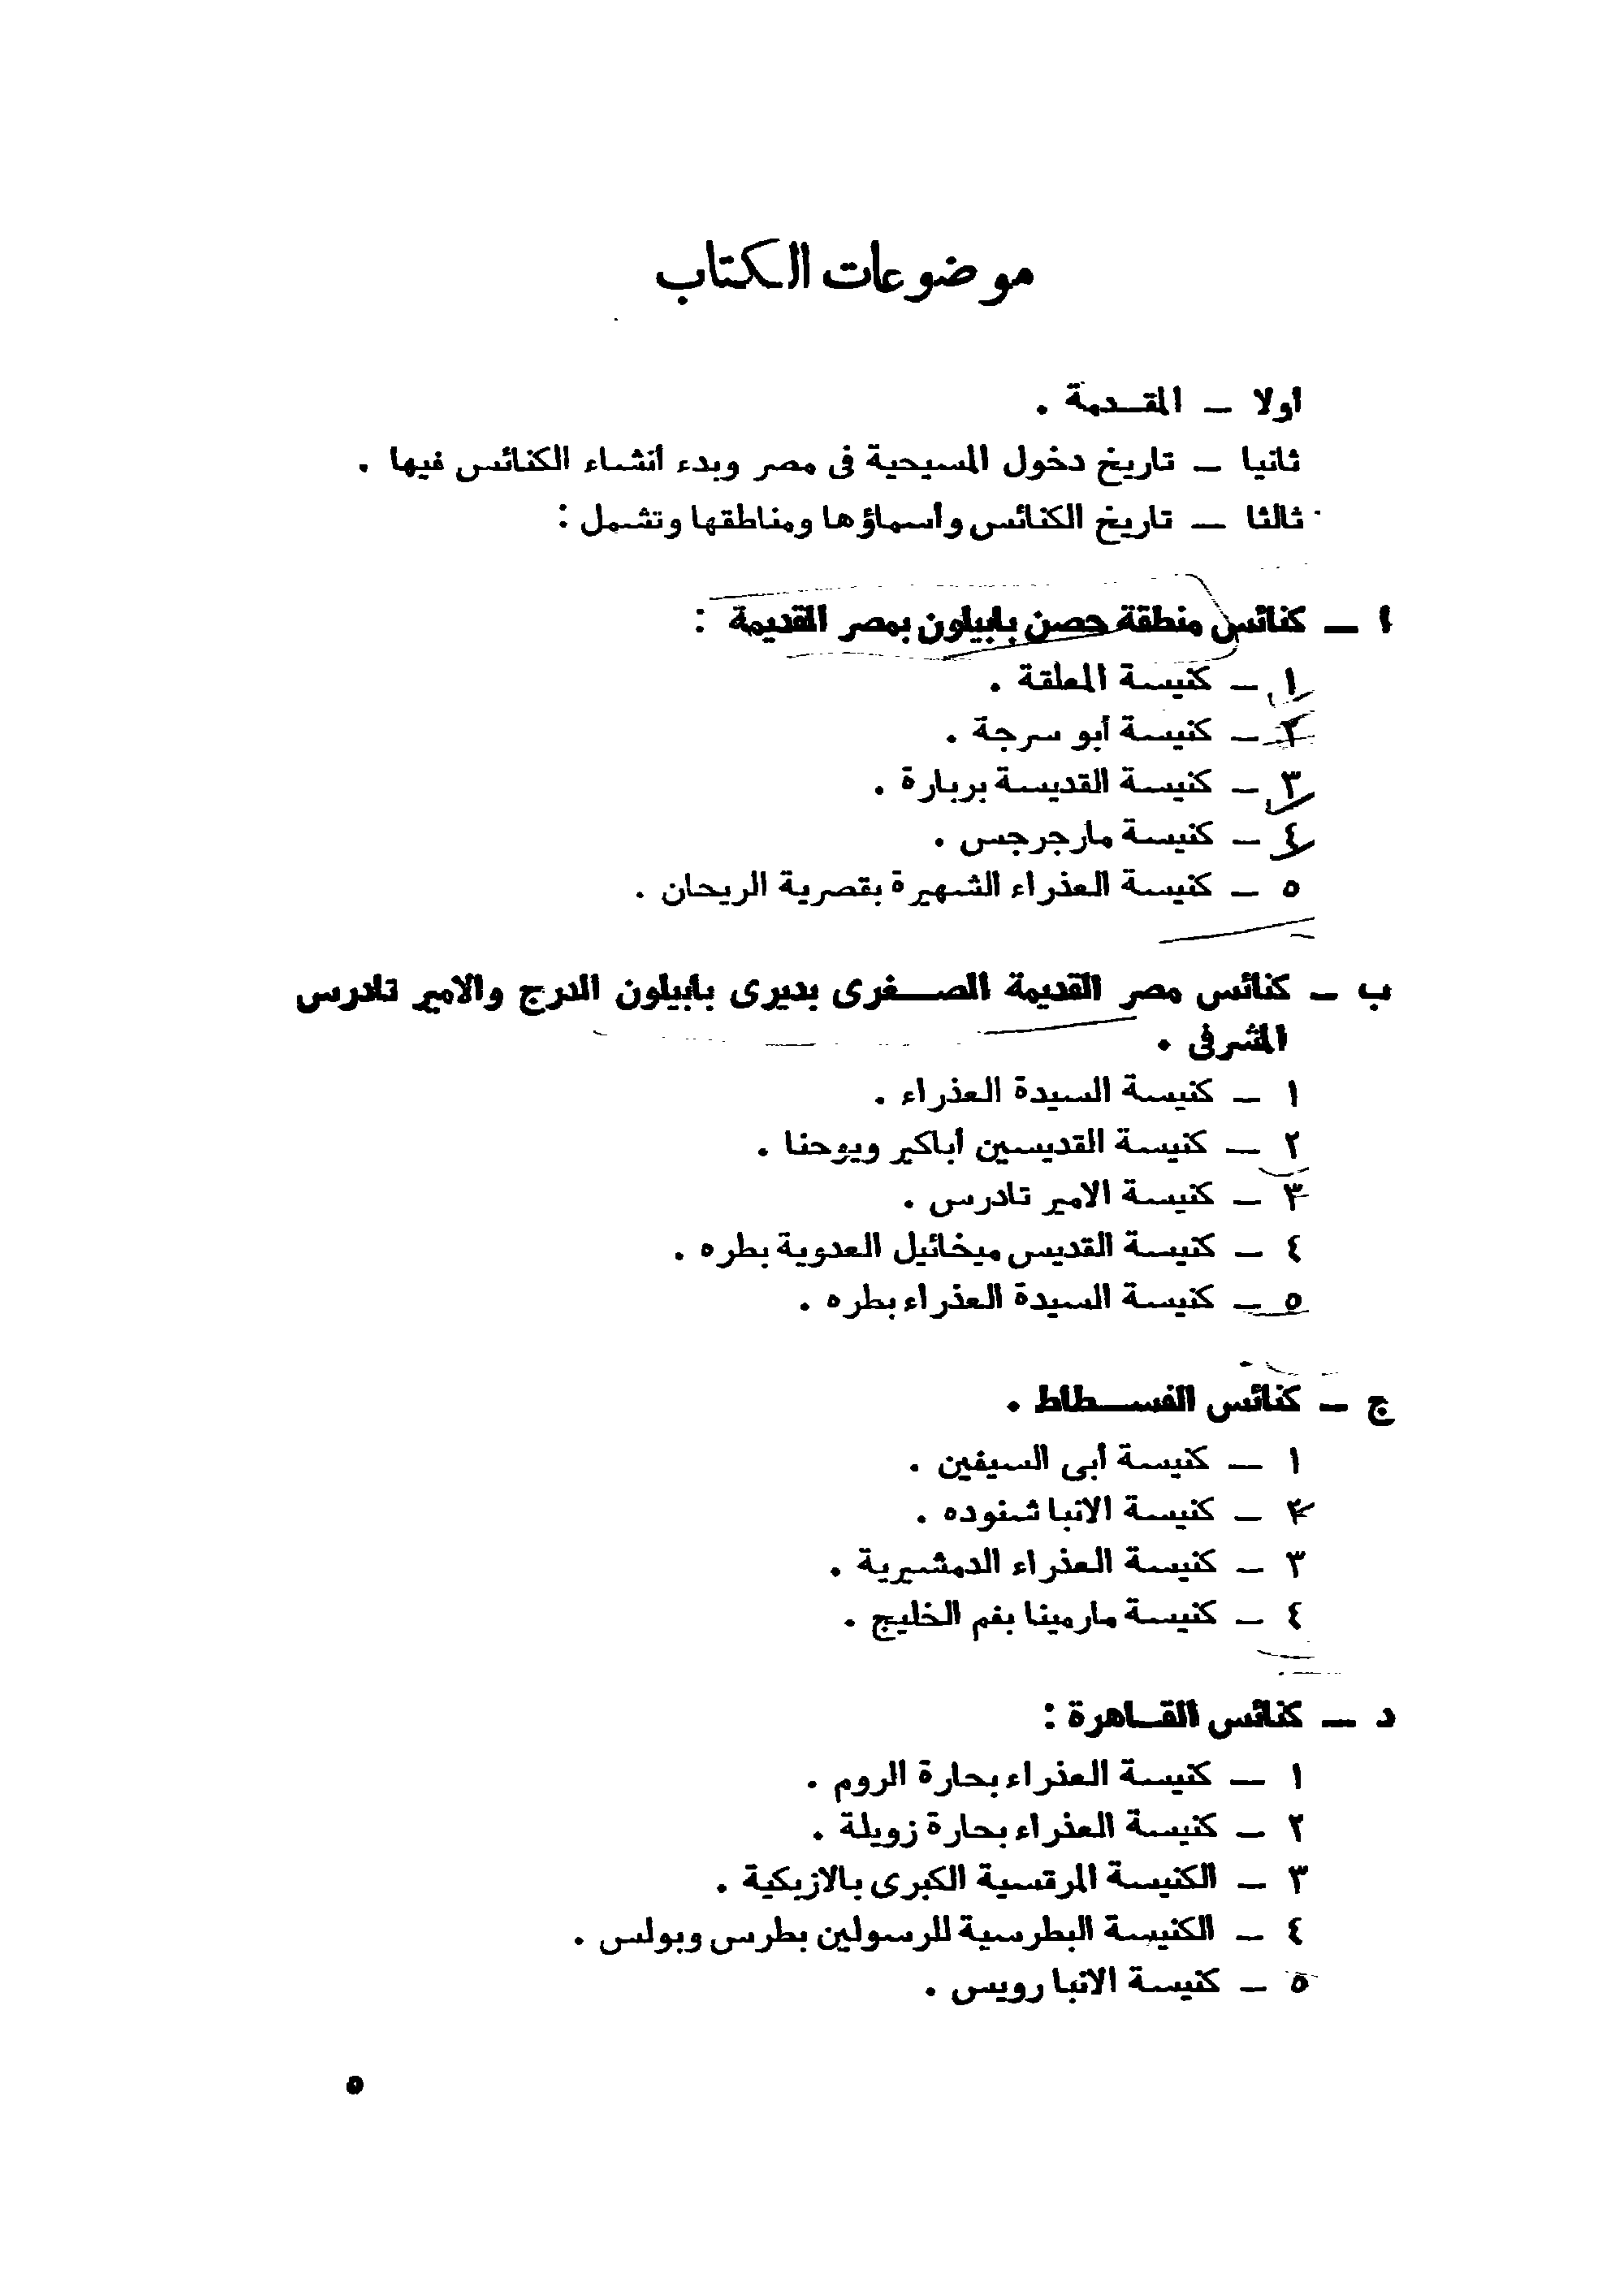 موضوعات الكتاب
اولا — المقدمة .
ثانيا — تاريخ دخول المسيحية فى مصر وبدء انشاء الكنائس فيها .
ثالثا — تاريخ الكنائس وأسماؤها ومناطقها وتشمل :
ا — كنائس منطقة حصن بابيلون بمصر القديمة :
١ — كنيسة المعلقة .
٢ — كنيسة أبو سرجة .
٣ — كنيسة القديسة بربارة .
٤ — كنيسة مارجرجس .
٥ — كنيسة العذراء الشهيرة بقصرية الريحان .
ب — كنائس مصر القديمة الصغرى بديرى بابيلون الدرج والامير تادرس
المشرفى .
١ — كنيسة السيدة العذراء .
٢ — كنيسة القديسين أباكير ويوحنا .
٣ — كنيسة الامير تادرس .
٤ — كنيسة القديس ميخائيل العدوية بطره .
٥ — كنيسة السيدة العذراء بطره .
ج — كنائس الفسطاط .
١ — كنيسة أبى السيفين .
٢ — كنيسة الانبا شنوده .
٣ — كنيسة العذراء الدمشيرية .
٤ — كنيسة مارمينا بفم الخليج .
د — كنائس القاهرة :
١ — كنيسة العذراء بحارة الروم .
٢ — كنيسة العذراء بحارة زويلة .
٣ — الكنيسة المرقسية الكبرى بالازبكية .
٤ — الكنيسة البطرسية للرسولين بطرس وبولس .
٥ — كنيسة الانبا رويس .
٥